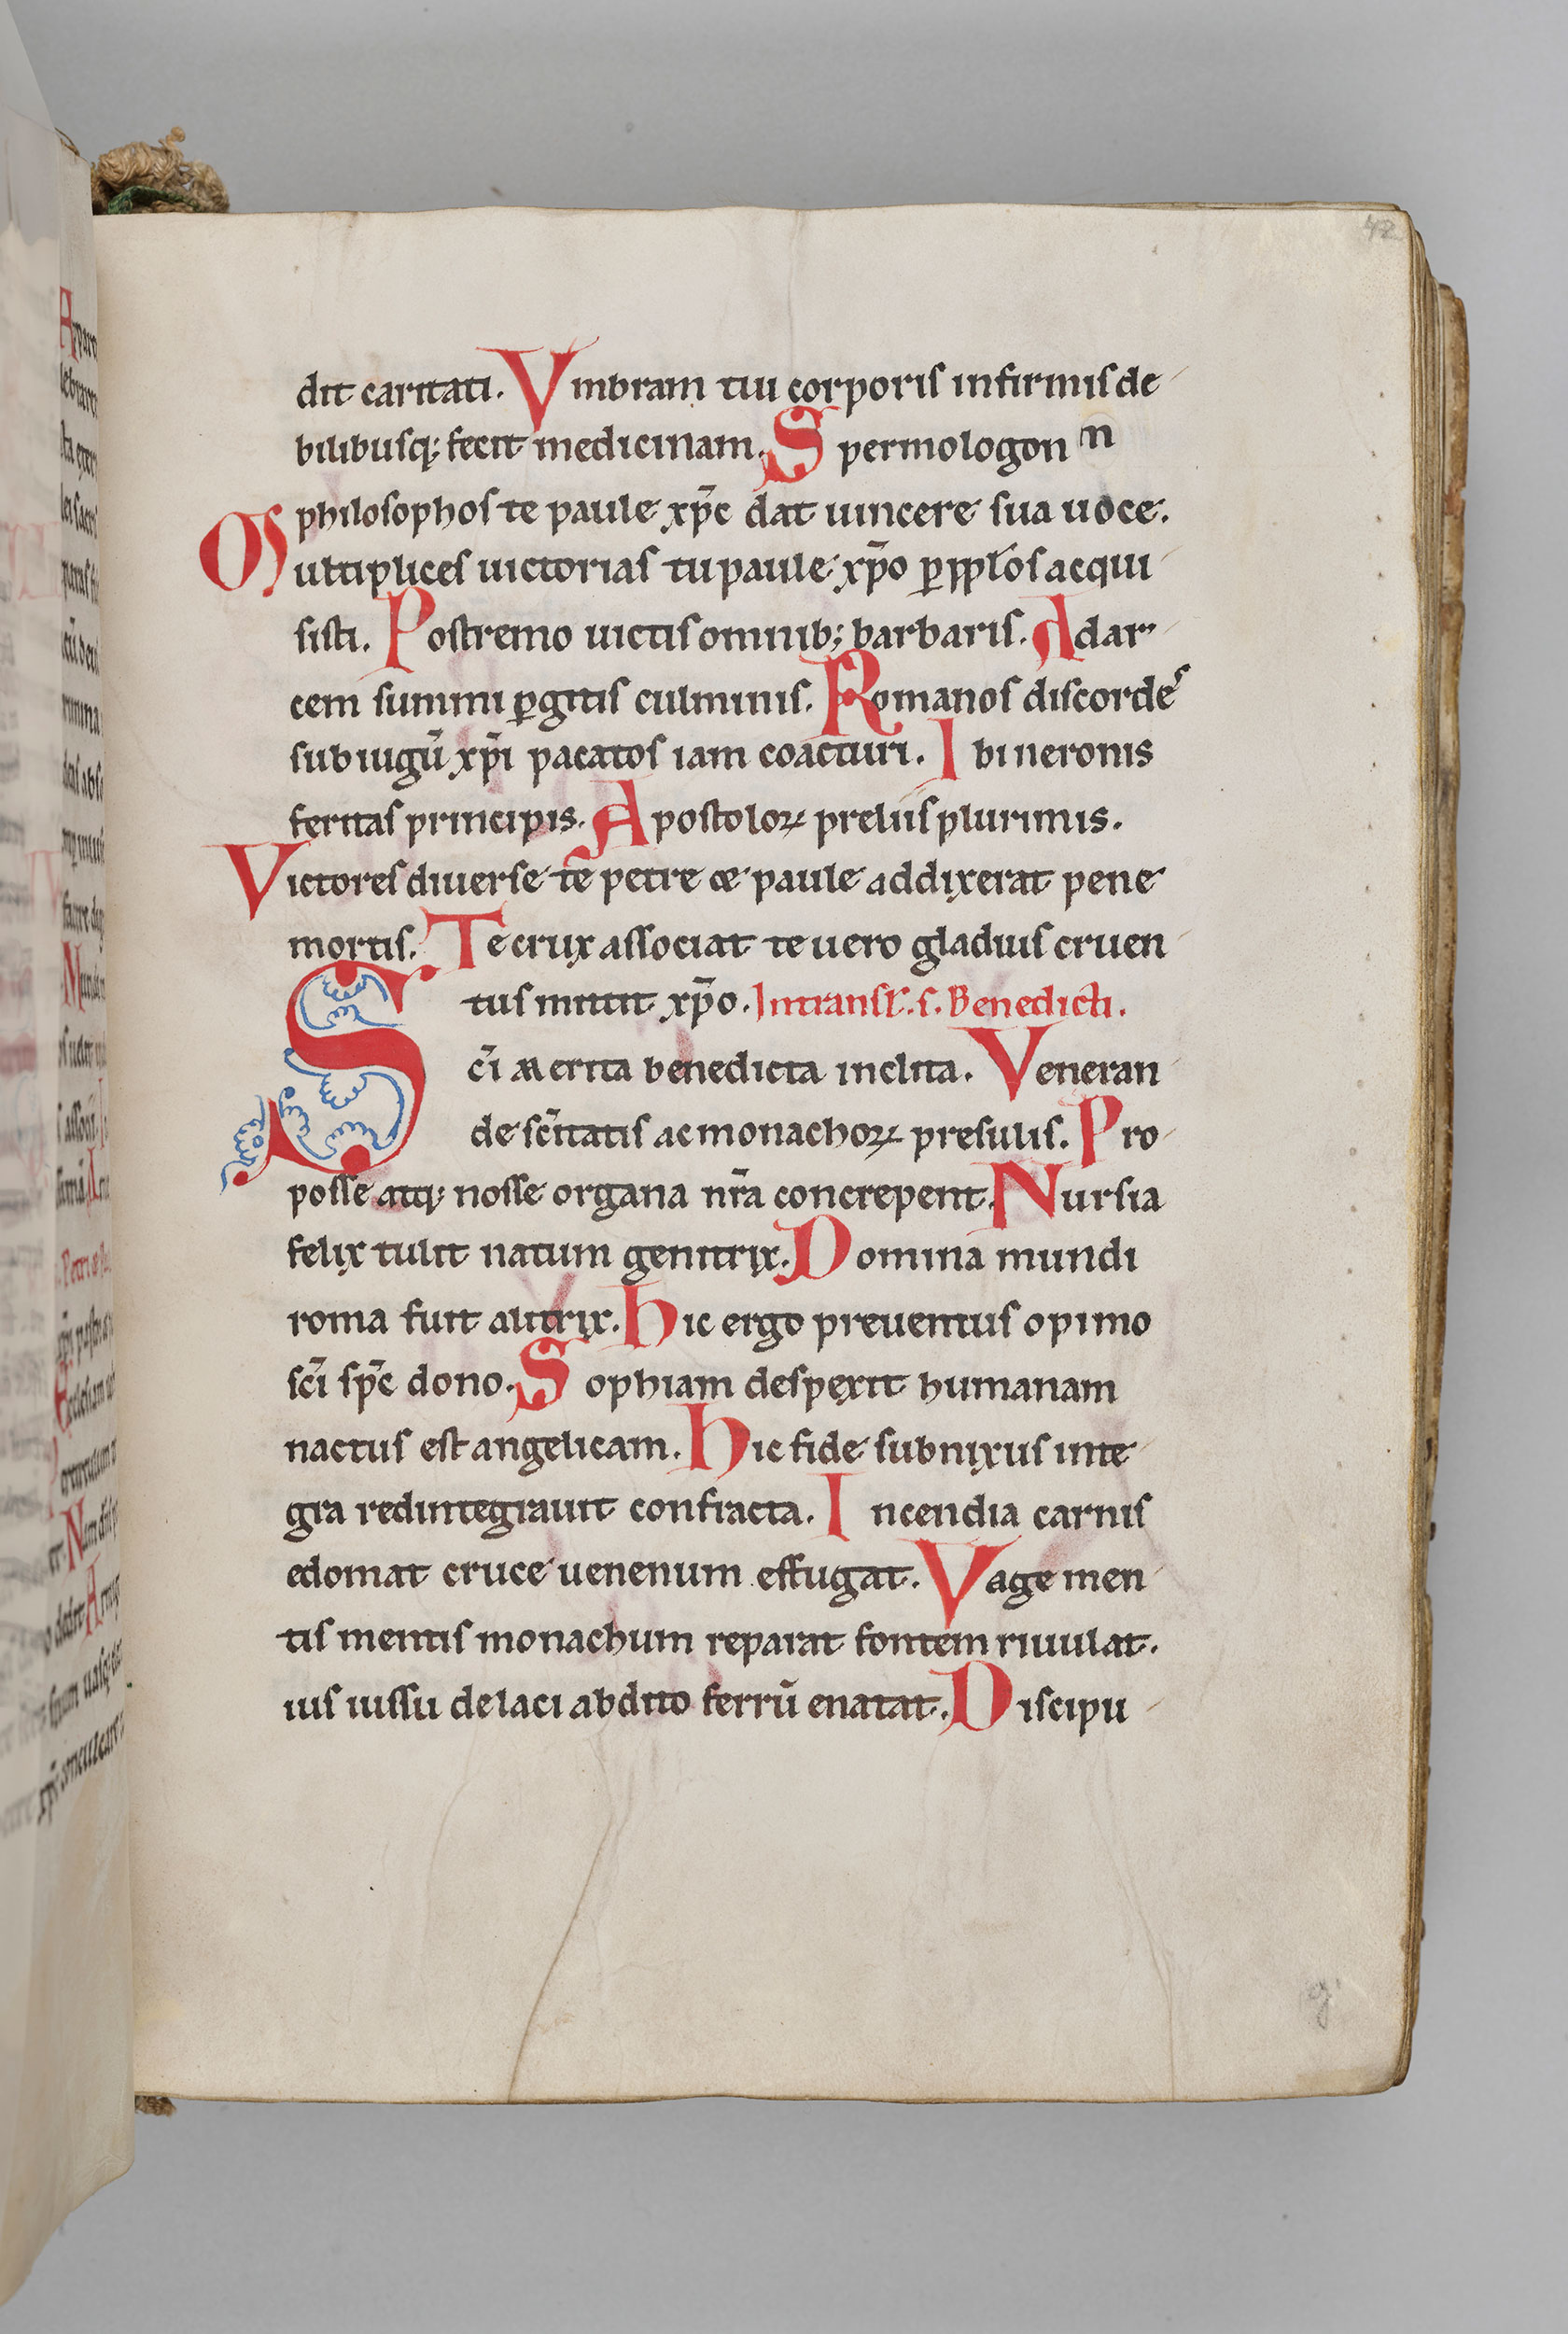 42
dit caritati. Vmbram tui corporis infirmis de-
bilibusq; fecit medicinam. Spermologon m
philosophos te paule xp̄c dat uincere sua uoce.
Multiplices uictorias tu paule xp̄o ꝑ pp̄los acqui-
sisti. Postremo uictis omnib; barbaris. Ad ar-
cem summi ꝑgitis culminis. Romanos discordes
sub iugū xp̄i pacatos iam coacturi. Ibi neronis
feritas principis. Apostoloꝝ preliis plurimis.
Victores diuerse te petre et paule addixerat pene
mortis. Te crux associat te uero gladius cruen-
tus mittit xp̄o. In transl̄. s. Benedicti.
Sc̄i Merita benedicta inclita. Veneran-
de sc̄itatis ac monachoꝝ presulis. Pro
posse atq; nosse organa nr̄a concrepent. Nursia
felix tulit natum genitrix. Domina mundi
roma fuit alitrix. Hic ergo preuentus opimo
sc̄i sp̄c dono. Sophiam despexit humanam
nactus est angelicam. Hic fide subnixus inte-
gra redintegrauit confracta. Incendia carnis
edomat cruce uenenum effugat. Vage men-
tis mentis monachum reparat fontem riuulat.
ius iussu de laci abdito ferrū enatat. Discipu-